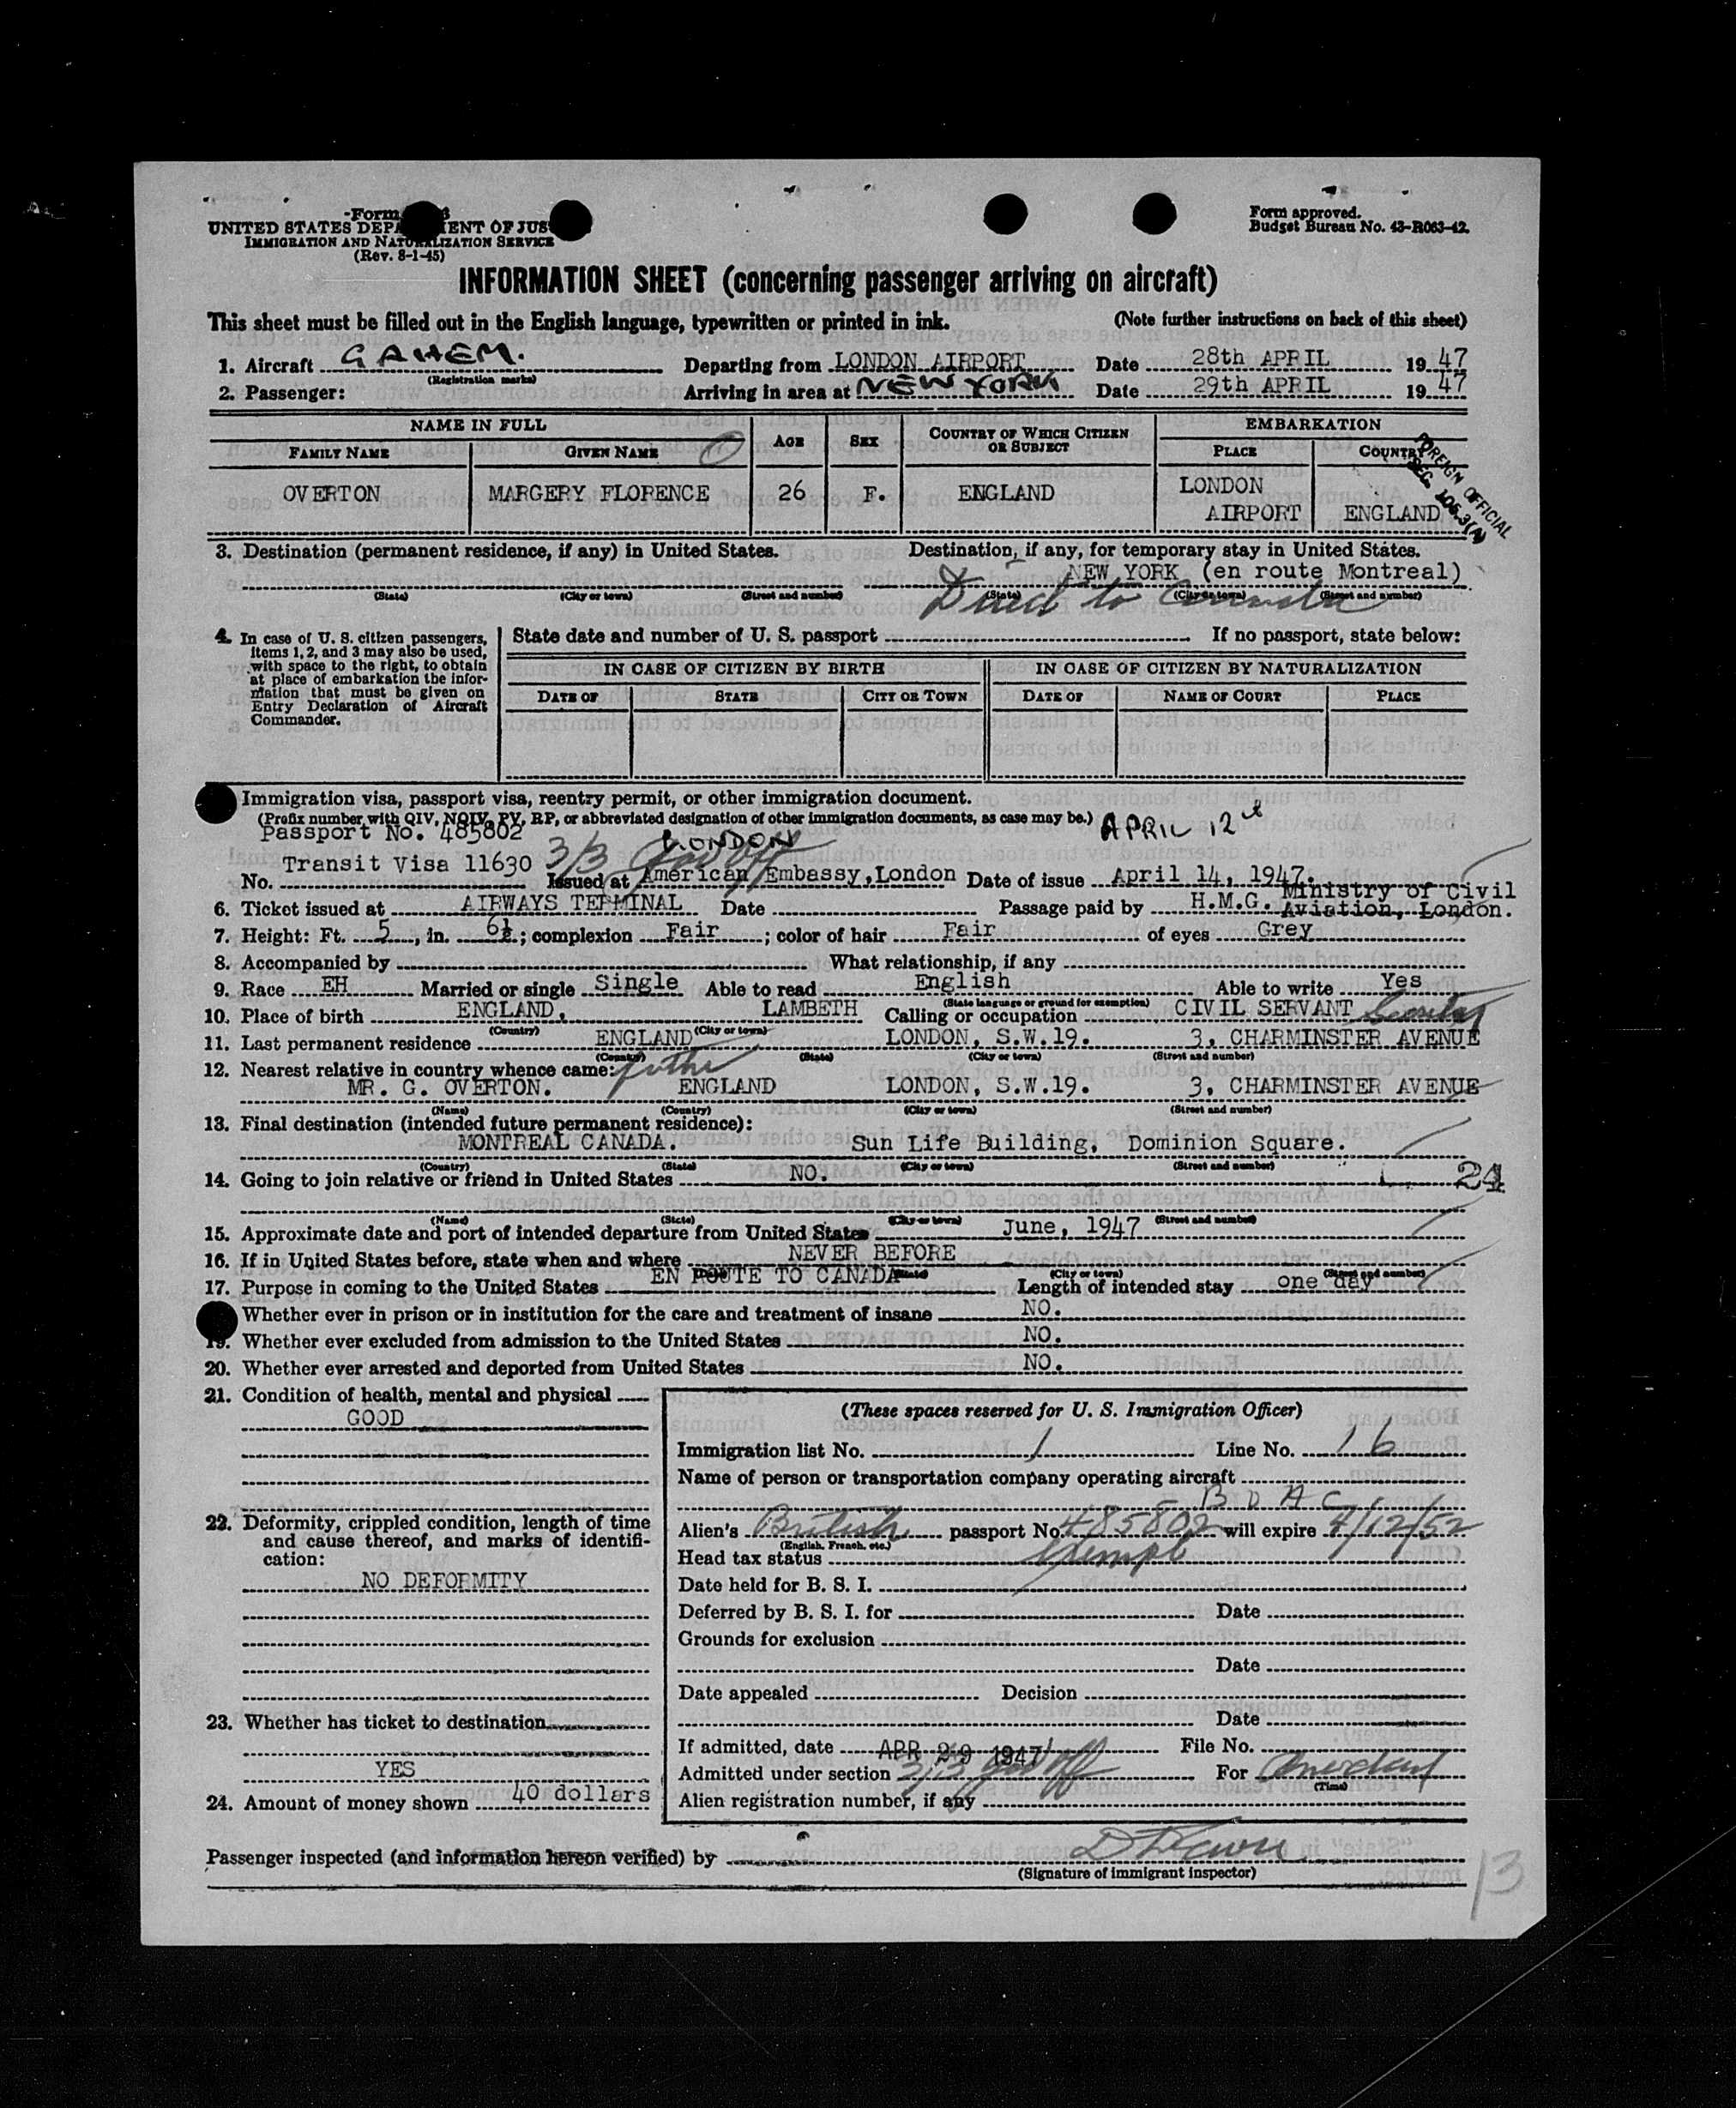 Form
UNITED STATES DEPARTMENT OF JUSTICE
IMMIGRATION AND NATURALIZATION SERVICE
(Rev. 8-1-45)
Form approved.
Budget Bureau No. 43-R063-42.
INFORMATION SHEET (concerning passenger arriving on aircraft)
This sheet must be filled out in the English language, typewritten or printed in ink. (Note further instructions on back of this sheet)
1. Aircraft GAHEM. Departing from LONDON AIRPORT Date 28th APRIL 19 47
(Registration marks)
2. Passenger: Arriving in area at NEW YORK Date 29th APRIL 19 47
NAME IN FULL AGE SEX COUNTRY OF WHICH CITIZEN OR SUBJECT EMBARKATION
FAMILY NAME GIVEN NAME PLACE COUNTRY
OVERTON MARGERY FLORENCE 26 F. ENGLAND LONDON AIRPORT ENGLAND
FOREIGN OFFICIAL
SEC. 106.3(A)
3. Destination (permanent residence, if any) in United States. Destination, if any, for temporary stay in United States.
NEW YORK (en route Montreal)
(State) (City or town) (Street and number) (State) (City or town) (Street and number)
Direct to Canada
4. In case of U. S. citizen passengers, items 1, 2, and 3 may also be used, with space to the right, to obtain at place of embarkation the information that must be given on Entry Declaration of Aircraft Commander.
State date and number of U. S. passport If no passport, state below:
IN CASE OF CITIZEN BY BIRTH IN CASE OF CITIZEN BY NATURALIZATION
DATE OF STATE CITY OR TOWN DATE OF NAME OF COURT PLACE
Immigration visa, passport visa, reentry permit, or other immigration document.
(Prefix number with QIV, NQIV, PV, RP, or abbreviated designation of other immigration documents, as case may be.)
Passport No. 485802 LONDON APRIL 12th
Transit Visa 11630 3/3 Gov Off
No. Issued at American Embassy, London Date of issue April 14, 1947.
6. Ticket issued at AIRWAYS TERMINAL Date Passage paid by H.M.G. Ministry of Civil Aviation, London.
7. Height: Ft. 5, in. 6½; complexion Fair; color of hair Fair of eyes Grey
8. Accompanied by What relationship, if any
9. Race EH Married or single Single Able to read English Able to write Yes
(State language or ground for exemption)
10. Place of birth ENGLAND, LAMBETH Calling or occupation CIVIL SERVANT
(Country) (City or town)
11. Last permanent residence ENGLAND LONDON, S.W.19. 3, CHARMINSTER AVENUE
(Country) (State) (City or town) (Street and number)
12. Nearest relative in country whence came: father
MR. G. OVERTON. ENGLAND LONDON, S.W.19. 3, CHARMINSTER AVENUE
(Name) (Country) (City or town) (Street and number)
13. Final destination (intended future permanent residence):
MONTREAL CANADA. Sun Life Building, Dominion Square.
(Country) (State) (City or town) (Street and number)
14. Going to join relative or friend in United States NO. 24
(Name) (State) (City or town) (Street and number)
15. Approximate date and port of intended departure from United States June, 1947
16. If in United States before, state when and where NEVER BEFORE
(State) (City or town) (Street and number)
17. Purpose in coming to the United States EN ROUTE TO CANADA Length of intended stay one day
Whether ever in prison or in institution for the care and treatment of insane NO.
19. Whether ever excluded from admission to the United States NO.
20. Whether ever arrested and deported from United States NO.
21. Condition of health, mental and physical
GOOD
22. Deformity, crippled condition, length of time and cause thereof, and marks of identification:
NO DEFORMITY
23. Whether has ticket to destination
YES
24. Amount of money shown 40 dollars
(These spaces reserved for U. S. Immigration Officer)
Immigration list No. 1 Line No. 16
Name of person or transportation company operating aircraft
BOAC
Alien's British passport No. 485802 will expire 4/12/52
(English, French, etc.)
Head tax status Exempt
Date held for B. S. I.
Deferred by B. S. I. for Date
Grounds for exclusion
Date
Date appealed Decision
Date
If admitted, date APR 29 1947 File No.
Admitted under section 3/3 Gov Off For One day
(Time)
Alien registration number, if any
Passenger inspected (and information hereon verified) by
(Signature of immigrant inspector)
13